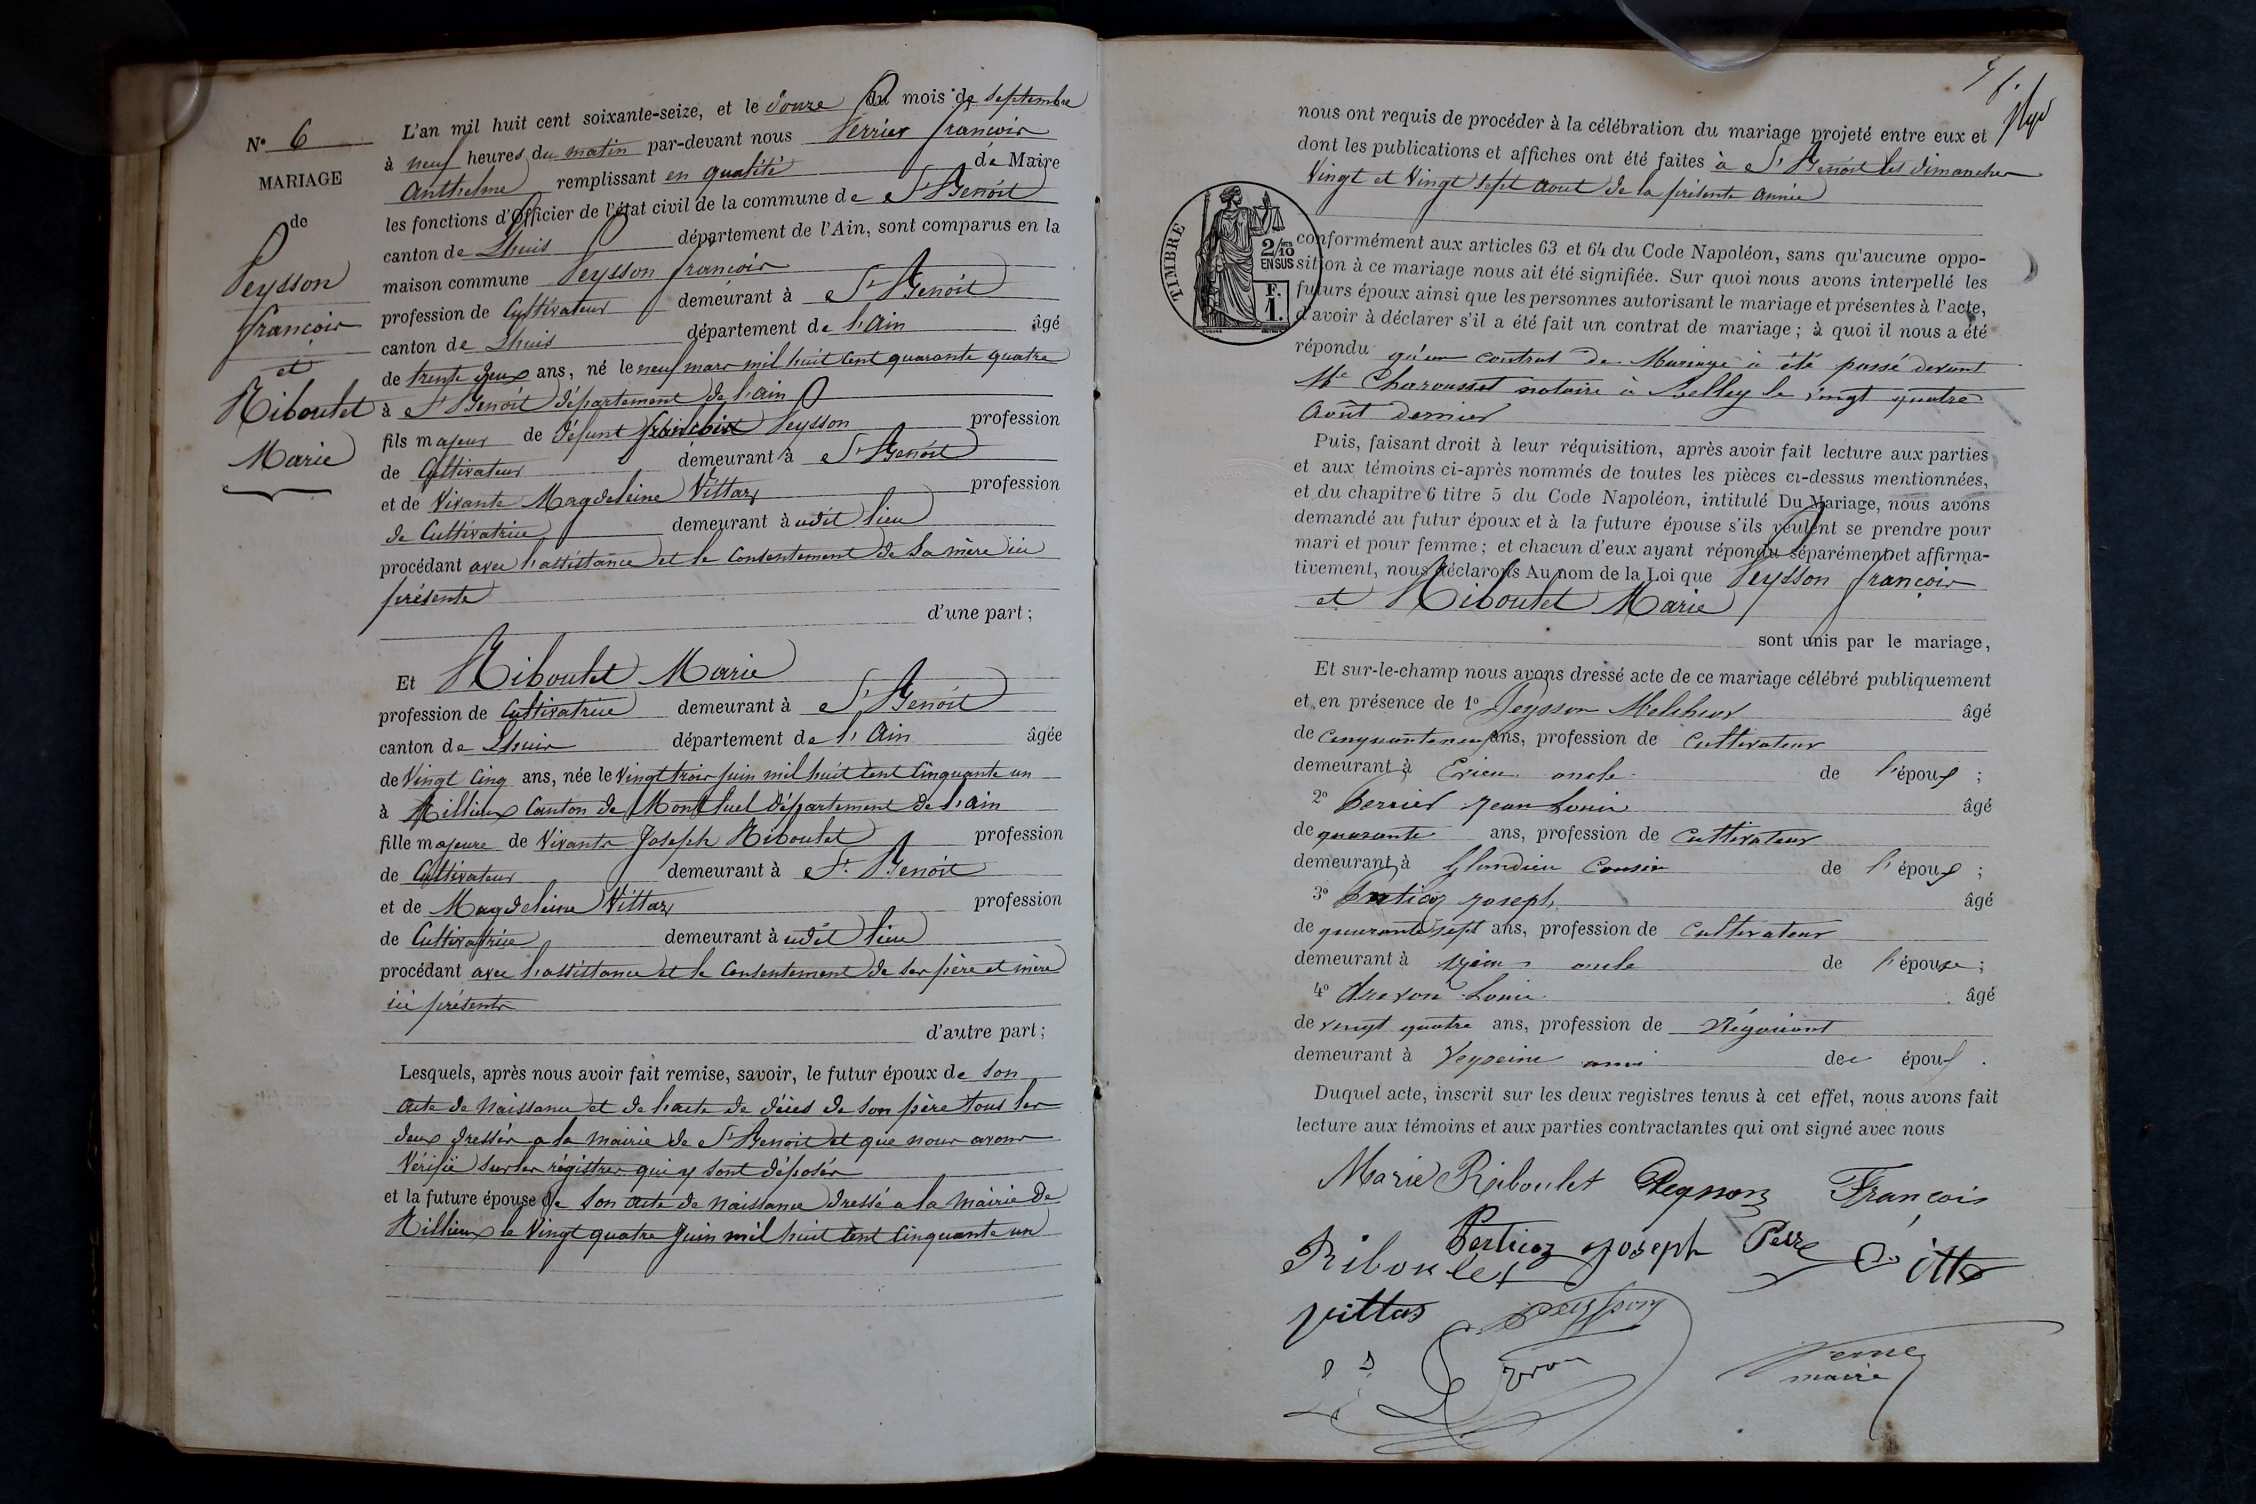 N° 6
MARIAGE
de
Peysson
françois
et
Riboulet
Marie
L'an mil huit cent soixante-seize, et le douze du mois de septembre
à neuf heures du matin par-devant nous Perrier françois
Anthelme remplissant en qualité de Maire
les fonctions d'Officier de l'état civil de la commune de St Benoit
canton de Lhuis département de l'Ain, sont comparus en la
maison commune Peysson françois
profession de Cultivateur demeurant à St Benoit
canton de Lhuis département de l'Ain âgé
de trente deux ans, né le neuf mars mil huit cent quarante quatre
à St Benoit département de l'ain
fils majeur de défunt Peysson profession
de Cultivateur demeurant à St Benoit
et de Vivante Magdeleine Vittoz profession
de Cultivatrice demeurant à udit lieu
procédant avec l'assistance et le Consentement de sa mère ici
présente
d'une part ;
Et Riboulet Marie
profession de Cultivatrice demeurant à St Benoit
canton de Lhuis département de l'Ain âgée
de Vingt Cinq ans, née le Vingt trois juin mil huit cent Cinquante un
à Rillieux Canton de Montluel Département de l'ain
fille majeure de Vivants Joseph Riboulet profession
de Cultivateur demeurant à St. Benoit
et de Magdeleine Vittoz profession
de Cultivatrice demeurant à udit lieu
procédant avec l'assistance et le Consentement de ses père et mère
ici présents
d'autre part ;
Lesquels, après nous avoir fait remise, savoir, le futur époux de son
acte de Naissance et de l'acte de décès de son père tous les
deux dressés a la mairie de St Benoit et que nous avons
Vérifié sur les régistres qui y sont déposés
et la future épouse de son acte de naissance dressé a la mairie de
Rillieux le Vingt quatre Juin mil huit Cent Cinquante un
nous ont requis de procéder à la célébration du mariage projeté entre eux et
dont les publications et affiches ont été faites à St Benoit les dimanches
Vingt et Vingt sept Aout de la présente année
TIMBRE
2/10
EN SUS
F.
1.
conformément aux articles 63 et 64 du Code Napoléon, sans qu'aucune oppo-
sition à ce mariage nous ait été signifiée. Sur quoi nous avons interpellé les
futurs époux ainsi que les personnes autorisant le mariage et présentes à l'acte,
d'avoir à déclarer s'il a été fait un contrat de mariage ; à quoi il nous a été
répondu qu'un contrat de Mariage à été passé devant
Me Charousset notaire à Belley le vingt quatre
Août dernier
Puis, faisant droit à leur réquisition, après avoir fait lecture aux parties
et aux témoins ci-après nommés de toutes les pièces ci-dessus mentionnées,
et du chapitre 6 titre 5 du Code Napoléon, intitulé Du Mariage, nous avons
demandé au futur époux et à la future épouse s'ils veulent se prendre pour
mari et pour femme ; et chacun d'eux ayant répondu séparément et affirma-
tivement, nous déclarons Au nom de la Loi que Peysson françois
et Riboulet Marie
sont unis par le mariage,
Et sur-le-champ nous avons dressé acte de ce mariage célébré publiquement
et en présence de 1° Peysson Melchior âgé
de Cinquante neuf ans, profession de Cultivateur
demeurant à Evieu oncle de l'époux ;
2° Perrier Jean Louis âgé
de quarante ans, profession de Cultivateur
demeurant à Glandieu Cousin de l'époux ;
3° Perticoz Joseph âgé
de quarante sept ans, profession de Cultivateur
demeurant à oncle de l'épouse ;
4° Louis âgé
de vingt quatre ans, profession de Négociant
demeurant à ami des époux .
Duquel acte, inscrit sur les deux registres tenus à cet effet, nous avons fait
lecture aux témoins et aux parties contractantes qui ont signé avec nous
Marie Riboulet Peysson François
Riboulet Perticoz Joseph
vittos Peysson
maire